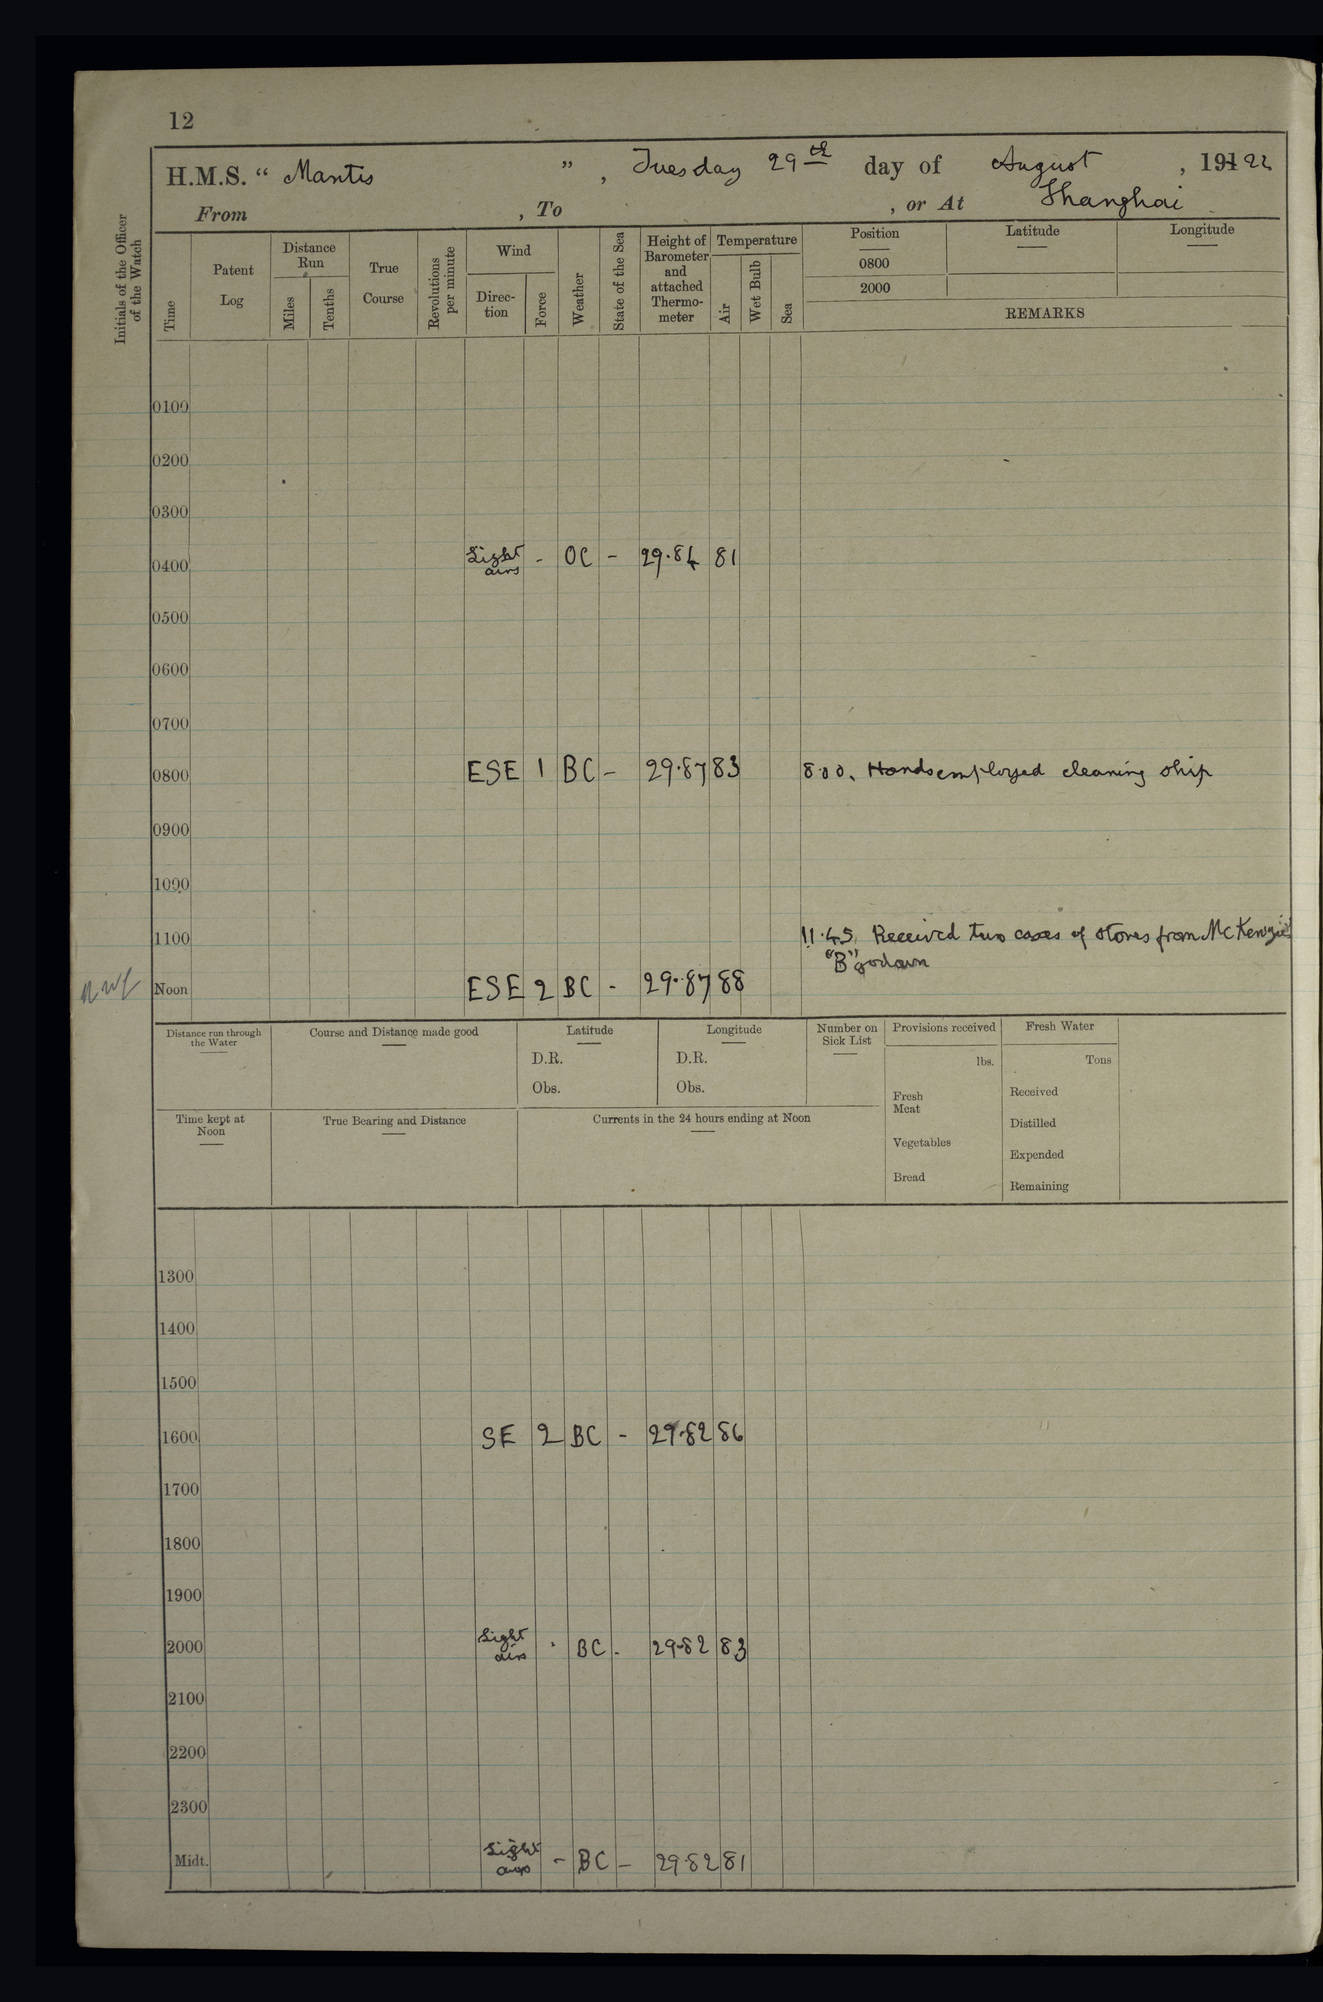 12
H.M.S. “ Mantis ” , Tuesday 29th day of August , 19122
From , To , or At Shanghai
Initials of the Officer of the Watch
Time
Patent Log
Distance Run
Miles
Tenths
True Course
Revolutions per minute
Wind
Direc-
tion
Force
Weather
State of the Sea
Height of
Barometer
and
attached
Thermo-
meter
Temperature
Air
Wet Bulb
Sea
Position Latitude Longitude
0800
2000
REMARKS
0100
0200
0300
0400 Light airs - OC - 29.84 81
0500
0600
0700
0800 ESE 1 BC - 29.87 83 8.00. Hands employed cleaning ship
0900
1000
1100 11.45. Received two cases of stores from McKenzie's
"B" godown
Noon ESE 2 BC - 29.87 88
Distance run through
the Water
Course and Distance made good
Latitude
D.R.
Obs.
Longitude
D.R.
Obs.
Number on
Sick List
Provisions received
lbs.
Fresh
Meat
Vegetables
Bread
Fresh Water
Tons
Received
Distilled
Expended
Remaining
Time kept at
Noon
True Bearing and Distance
Currents in the 24 hours ending at Noon
1300
1400
1500
1600 SE 2 BC - 29.82 86
1700
1800
1900
2000 Light airs . BC - 29.82 83
2100
2200
2300
Midt. Light airs - BC - 29.82 81